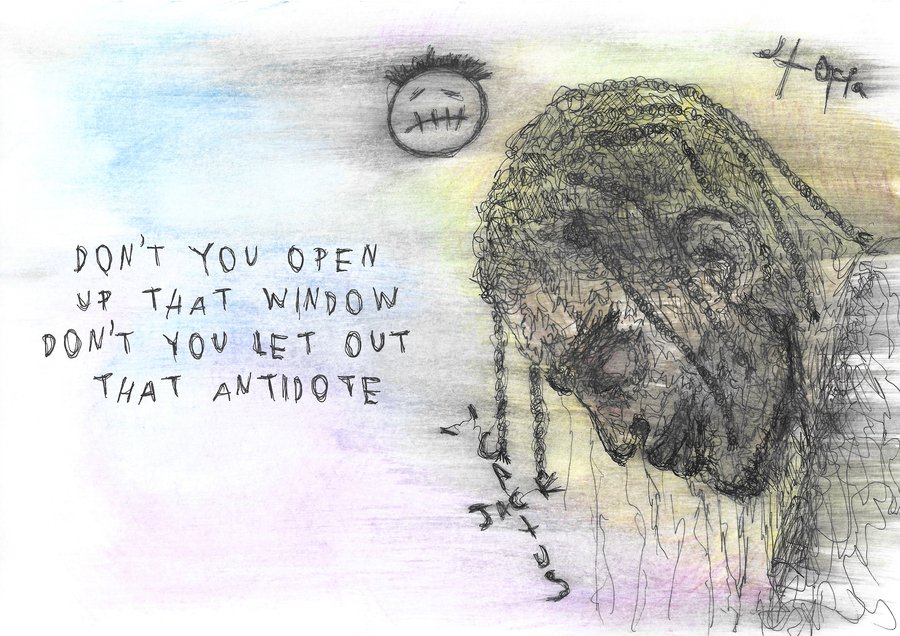 DON'T YOU OPEN
UP THAT WINDOW
DON'T YOU LET OUT
THAT ANTIDOTE
JACK